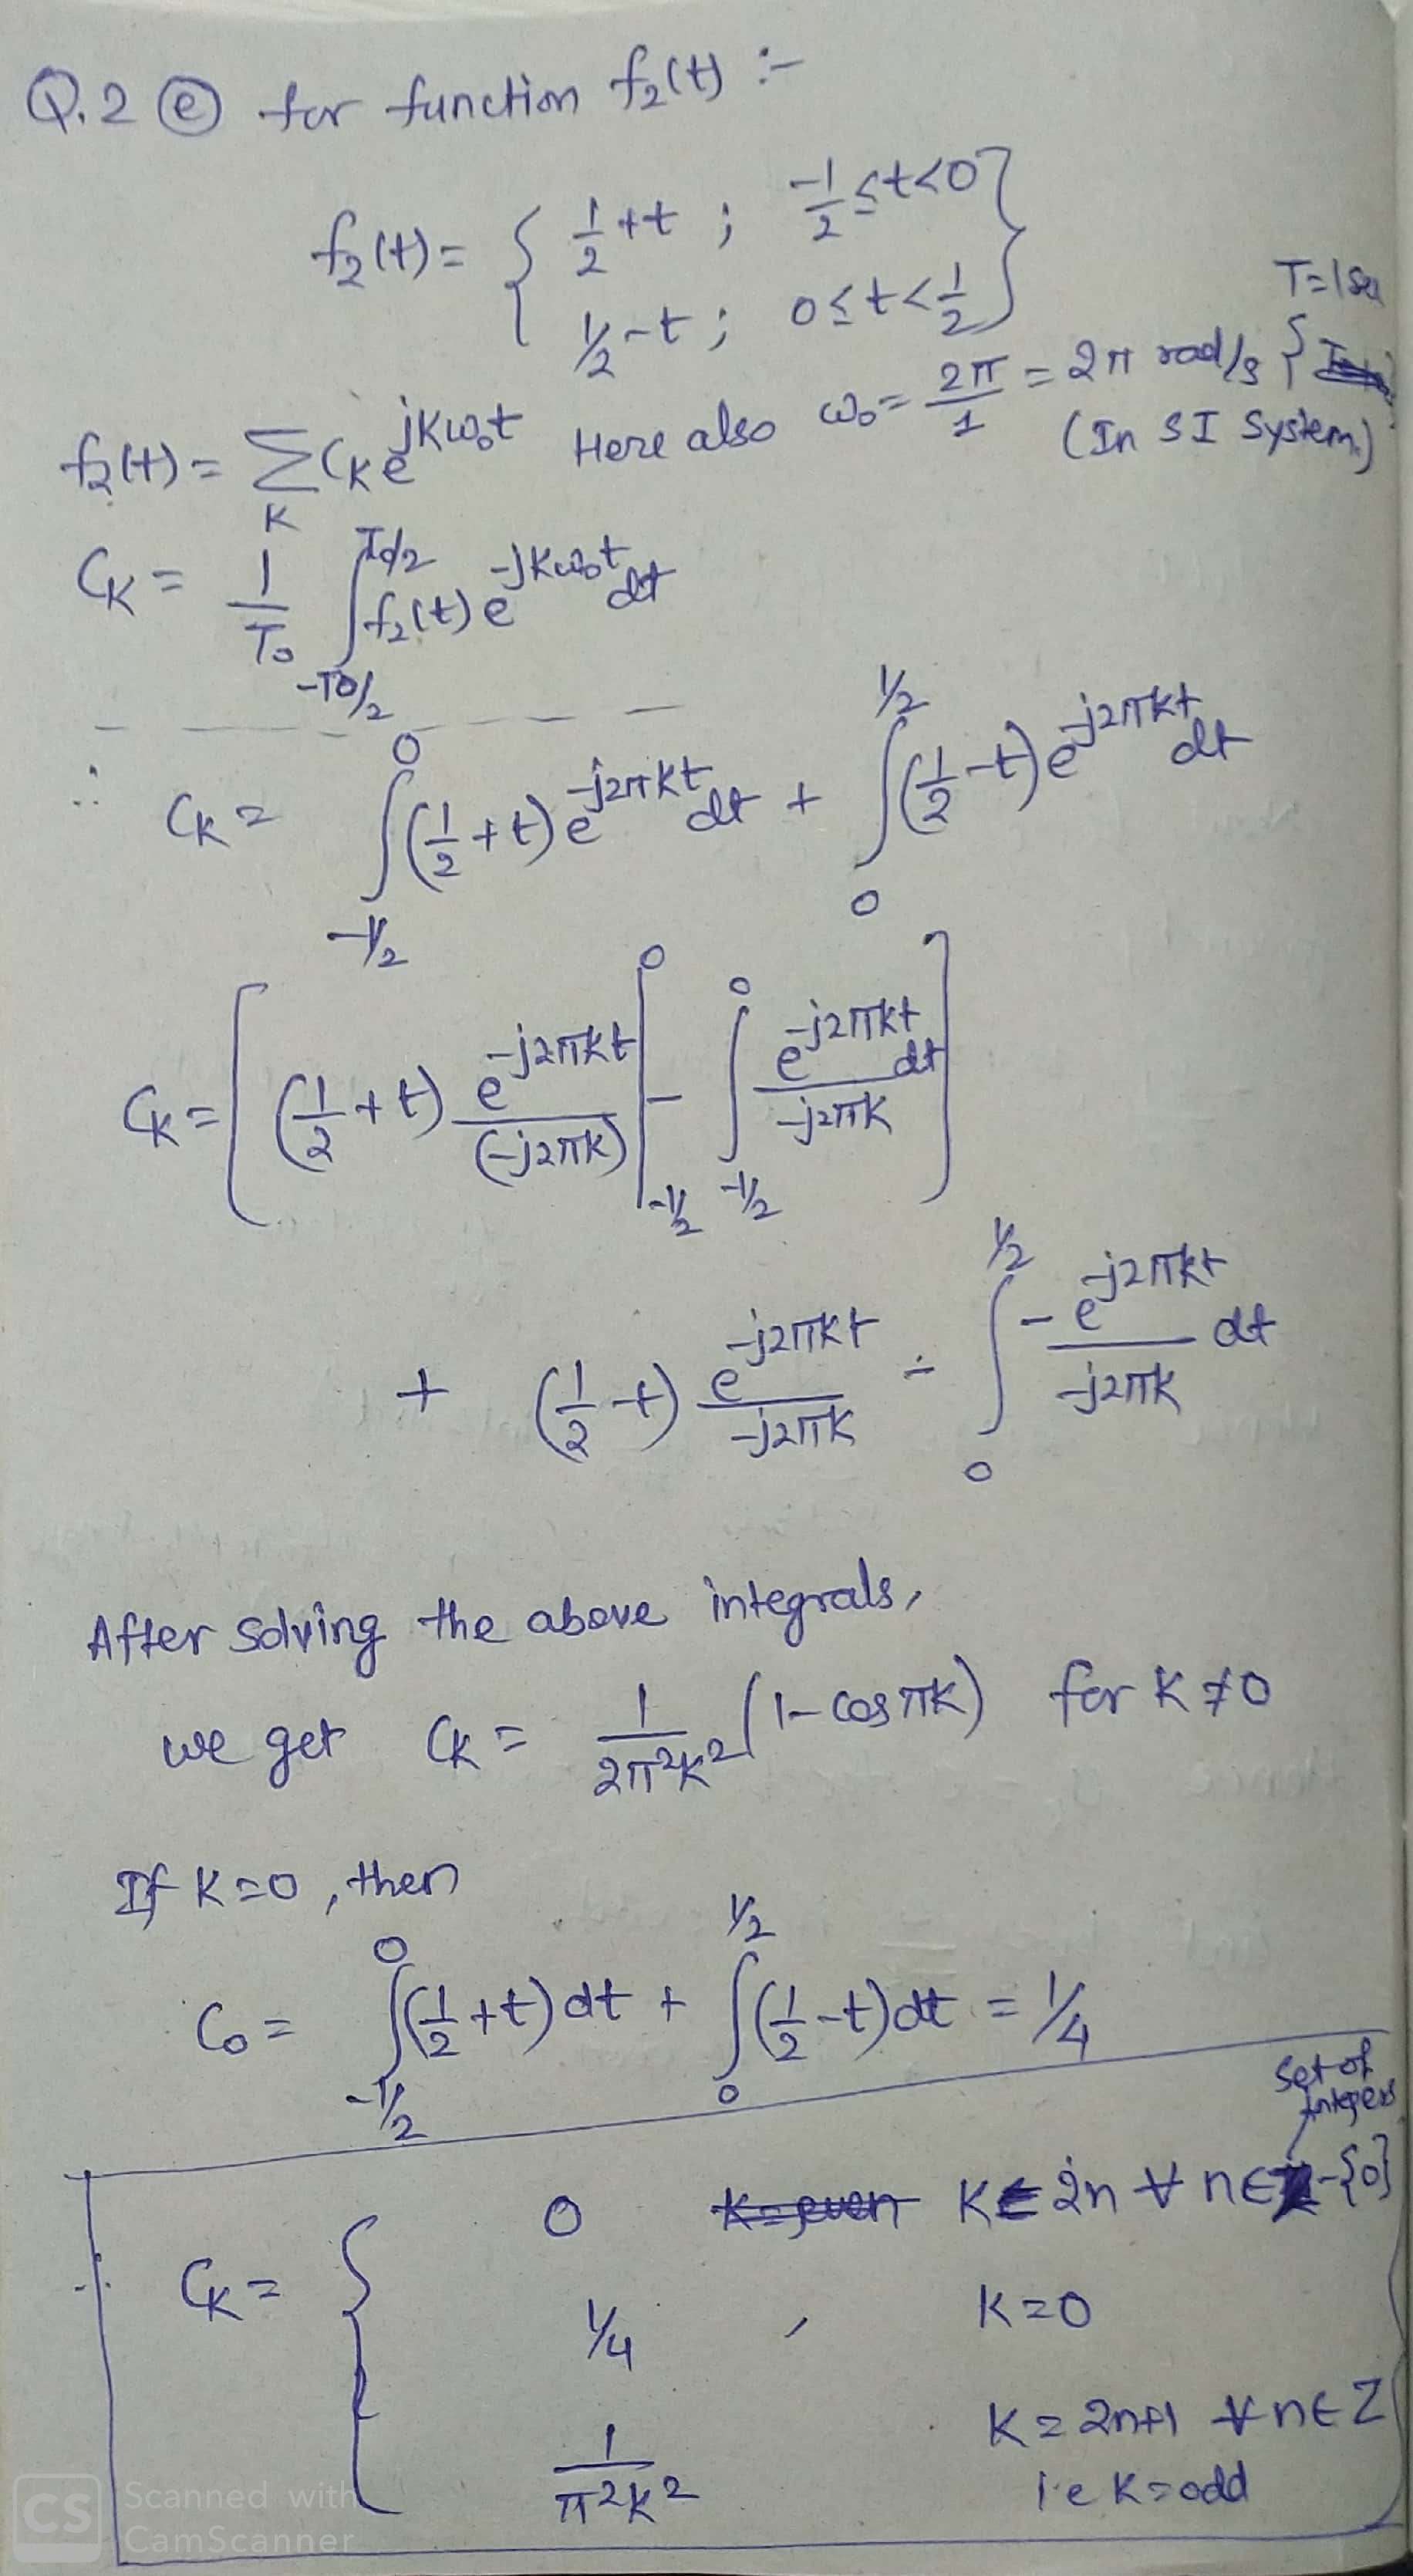 Q.2 (e) for function f₂(t) :-
f₂(t) = { 1/2 + t ; -1/2 ≤ t < 0 }
1/2 - t ; 0 ≤ t < 1/2
T = 1 sec
f₂(t) = Σ_K C_K e^{jKω₀t} Here also ω₀ = 2π/1 = 2π rad/s {
(In SI System)
C_K = 1/T₀ ∫_{-T₀/2}^{T₀/2} f₂(t) e^{-jKω₀t} dt
∴ C_K = ∫_{-1/2}^{0} (1/2 + t) e^{-j2πkt} dt + ∫_{0}^{1/2} (1/2 - t) e^{-j2πkt} dt
C_K = [ (1/2 + t) e^{-j2πkt}/(-j2πk) |_{-1/2}^{0} - ∫_{-1/2}^{0} e^{-j2πkt} dt/-j2πk ]
+ (1/2 - t) e^{-j2πkt}/-j2πk - ∫_{0}^{1/2} - e^{-j2πkt}/-j2πk dt
After solving the above integrals,
we get C_K = 1/2π²k² (1 - cos πk) for K ≠ 0
If K = 0, then
C₀ = ∫_{-1/2}^{0} (1/2 + t) dt + ∫_{0}^{1/2} (1/2 - t) dt = 1/4
set of
integers
0 K=even K = 2n ∀ n ∈ Z - {0}
∴ C_K = { 1/4 , K = 0
1/π²k² K = 2n+1 ∀ n ∈ Z
i.e K = odd
CS Scanned with
CamScanner